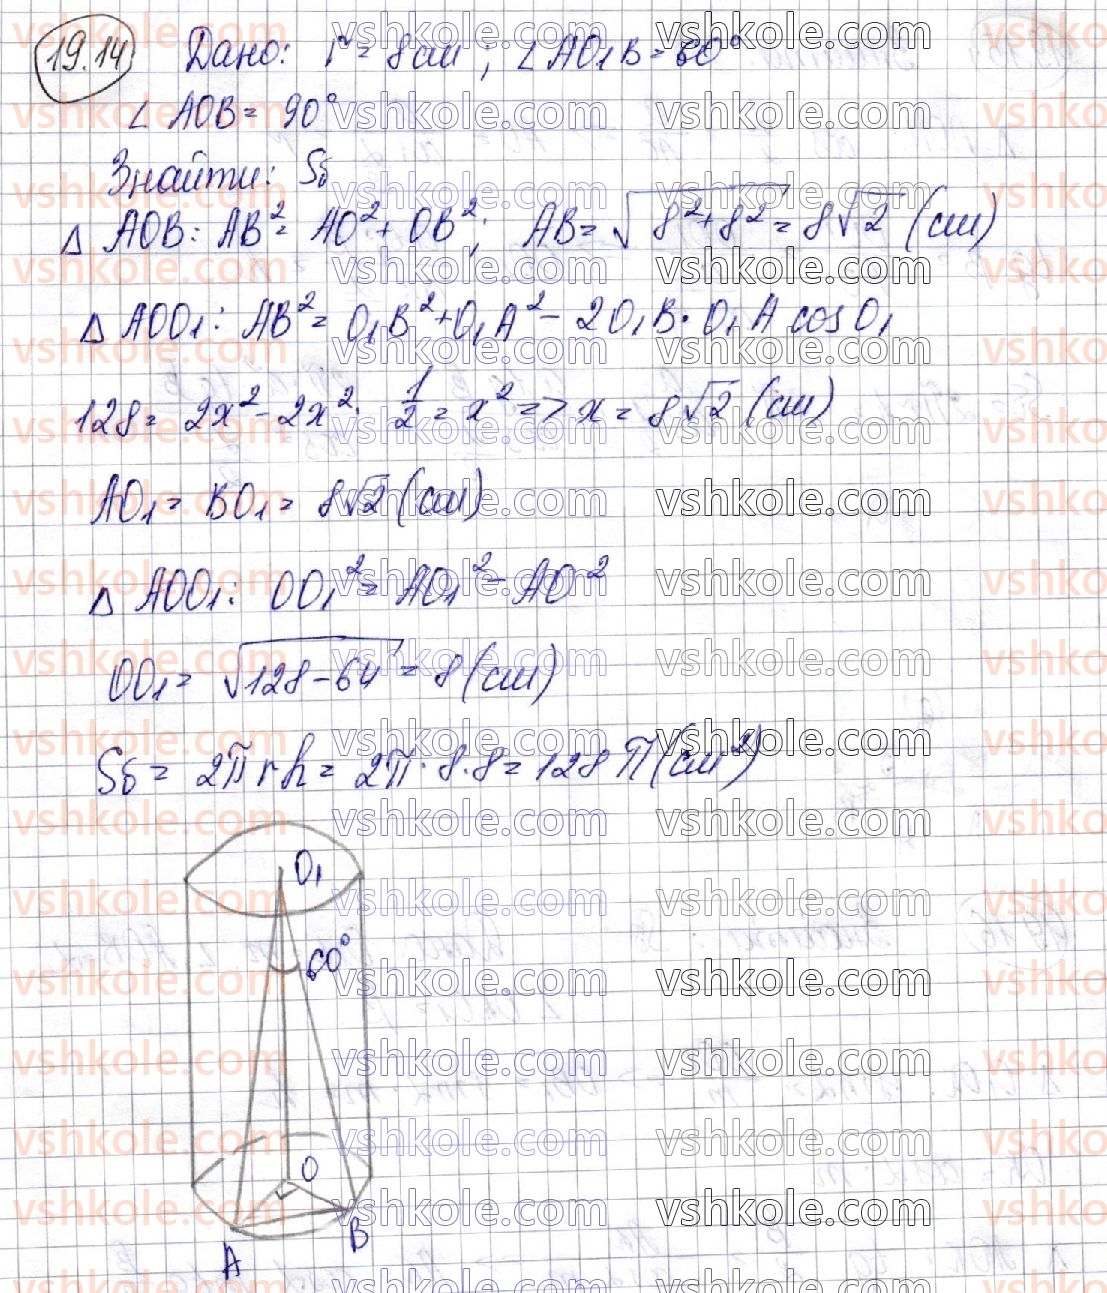 19.14 Дано: r = 8 см ; ∠AO₁B = 60°
∠ AOB = 90°
Знайти: Sб
Δ AOB: AB² = AO² + OB² ; AB = √(8²+8²) = 8√2 (см)
Δ AOO₁: AB² = O₁B² + O₁A² - 2O₁B · O₁A cos O₁
128 = 2x² - 2x² · 1/2 = x² => x = 8√2 (см)
AO₁ = BO₁ = 8√2 (см)
Δ AOO₁: OO₁² = AO₁² - AO²
OO₁ = √(128-64) = 8 (см)
Sб = 2πrh = 2π · 8 · 8 = 128π (см²)
O₁
60°
O
B
A
vshkole.com